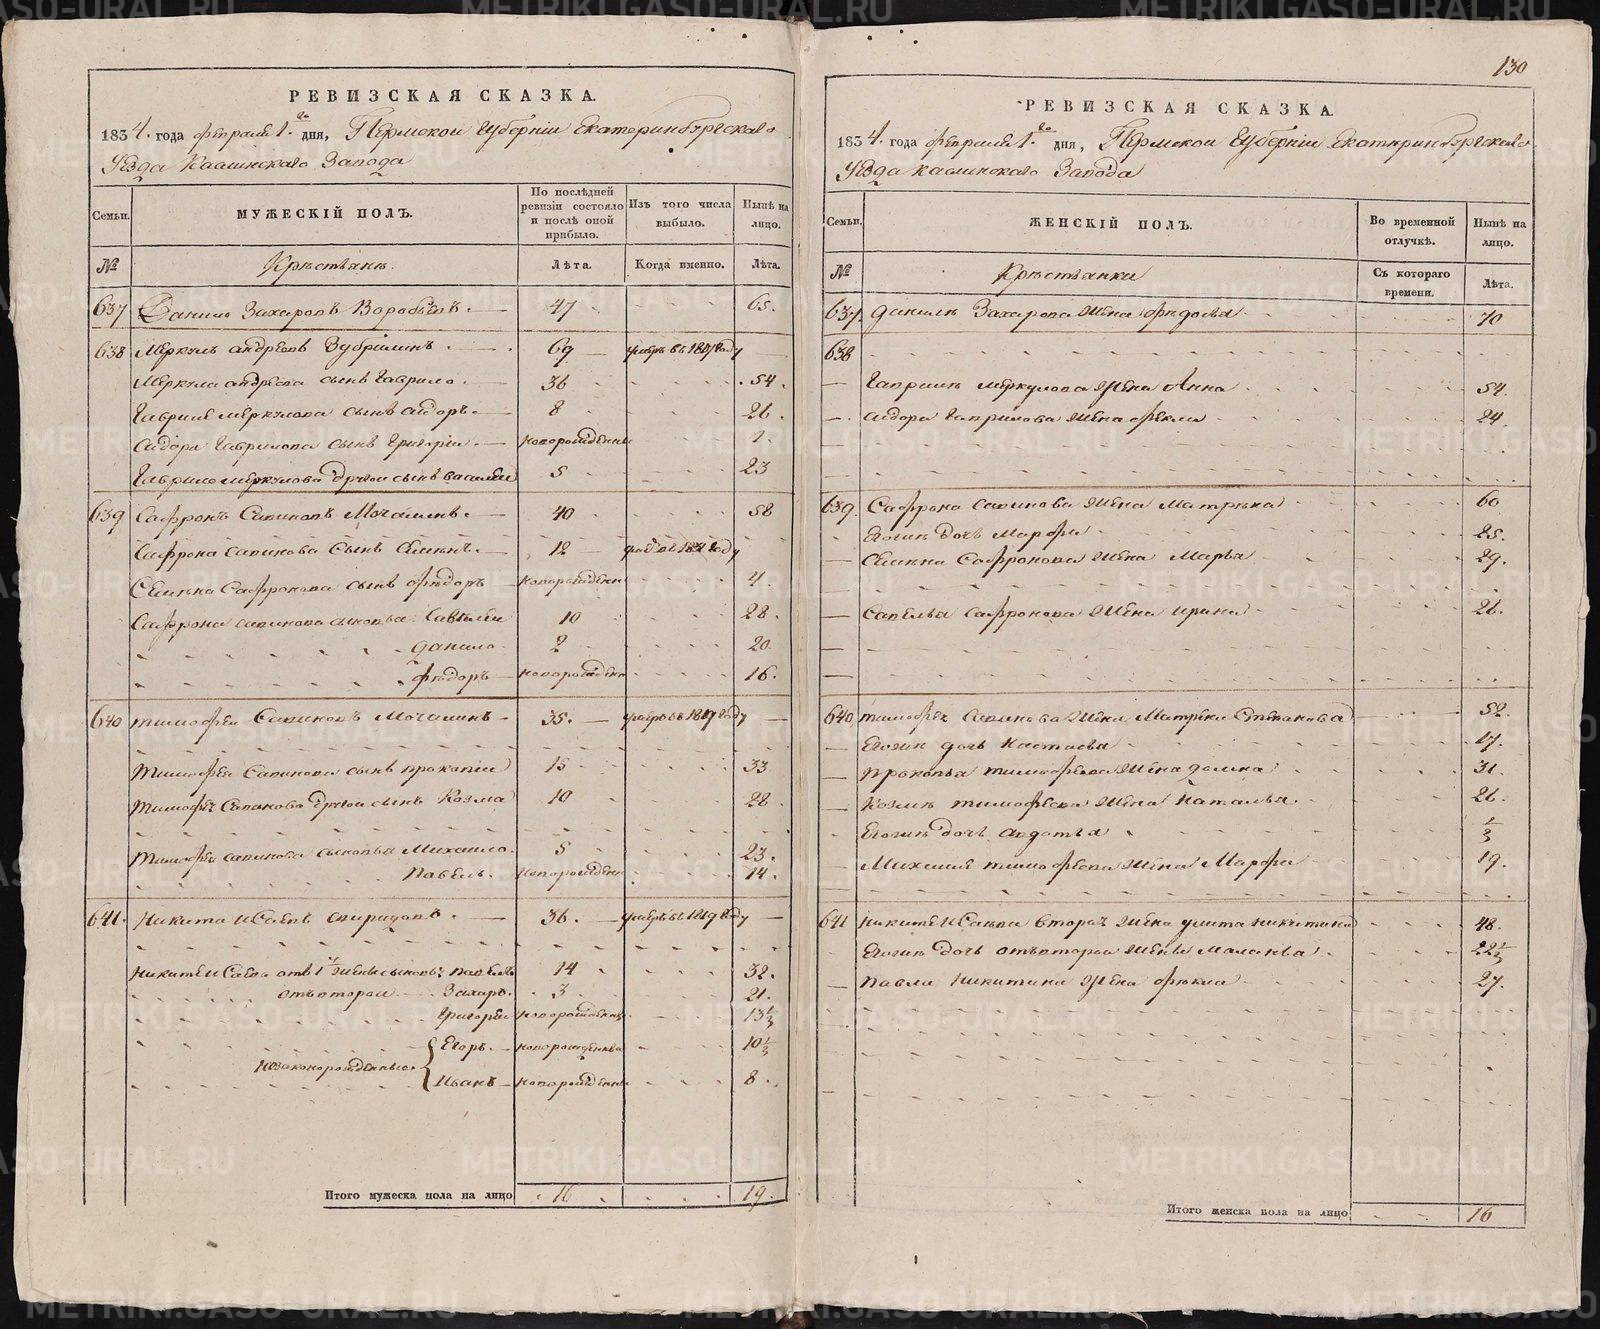 130
РЕВИЗСКАЯ СКАЗКА.
1834. года февраля 1го дня, Пермской Губерніи Екатеринбургскаго
Уѣзда Каслинскаго Завода
Семьи.
МУЖЕСКІЙ ПОЛЪ.
По послѣдней ревизіи состояло и послѣ оной прибыло.
Изъ того числа выбыло.
Нынѣ на лицо.
№
Крѣстьянѣ.
Лѣта.
Когда именно.
Лѣта.
637 Данило Захаровъ Воробьевъ. 47 65.
638 Меркулъ андреевъ Зубрилинъ 69 умеръ въ 18 году
Меркула андреева сынъ Гаврило. 36 54.
Гаврилы меркулова сынъ сидоръ. 8 26.
сидора Гаврилова сынъ Григорій новорожденъ 1.
Гаврилы меркулова другой сынъ василей 5 23
639 Сафронъ Савиновъ Мочалинъ. 40 58
Сафрона Савинова Сынъ Семенъ. 12 году
Семена Сафронова сынъ фѣдоръ новорожденъ 4.
Сафрона савинова сыновья Савелей 10 28.
данило 2 20.
фѣдоръ новорожденъ 16.
640 тимофей Савиновъ Мочалинъ 35. умеръ въ 18 году
Тимофея Савинова сынъ прокопій 15 33
Тимофея Савинова другой сынъ Козма 10 28.
Тимофея савинова сыновья Михаило 5 23.
Павелъ. новорожденъ 14.
641. Никита Исаевъ спиридовъ. 36. умеръ въ 1819 году
Никиты Исаева отъ 1й жены сыновья павелъ 14 32.
отъ второй Захаръ. 3 21.
Григорей новорожденъ 13½
Незаконорожденные Егоръ. новорожденъ 10½
Иванъ новорожденъ 8
Итого мужеска пола на лицо 16 19.
РЕВИЗСКАЯ СКАЗКА.
1834. года февраля 1го дня, Пермской Губерніи Екатеринбургскаго
Уѣзда Каслинскаго Завода
Семьи.
ЖЕНСКІЙ ПОЛЪ.
Во временной отлучкѣ.
Нынѣ на лицо.
№
Крѣстьянки
Съ котораго времени.
Лѣта.
637. данилы Захарова Жена федосья 70
638
Гаврилы меркулова Жена Анна 54.
сидора Гаврилова Жена фекла 24.
639. Сафрона савинова Жена Матрена 60
Егожъ дочь Марфа 25.
Семена Сафронова Жена Марья 29.
Савелья сафронова Жена ирина 26.
640 тимофея Савинова Жена Матрена Степанова 52.
Егожъ дочь Настасья 17.
прокопья тимофеева Жена домна 31.
Козмы тимофеева Жена Наталья 26.
Егожъ дочь авдотья ½
Михаилы тимофеева Жена Марфа 19.
641 Никиты Исаева вторая Жена улита никитина 48.
Егожъ дочь отъ второй Жены Маланья 22½
Павла Никитина Жена фекла 27.
Итого женска пола на лицо 16
METRIKI.GASO-URAL.RU